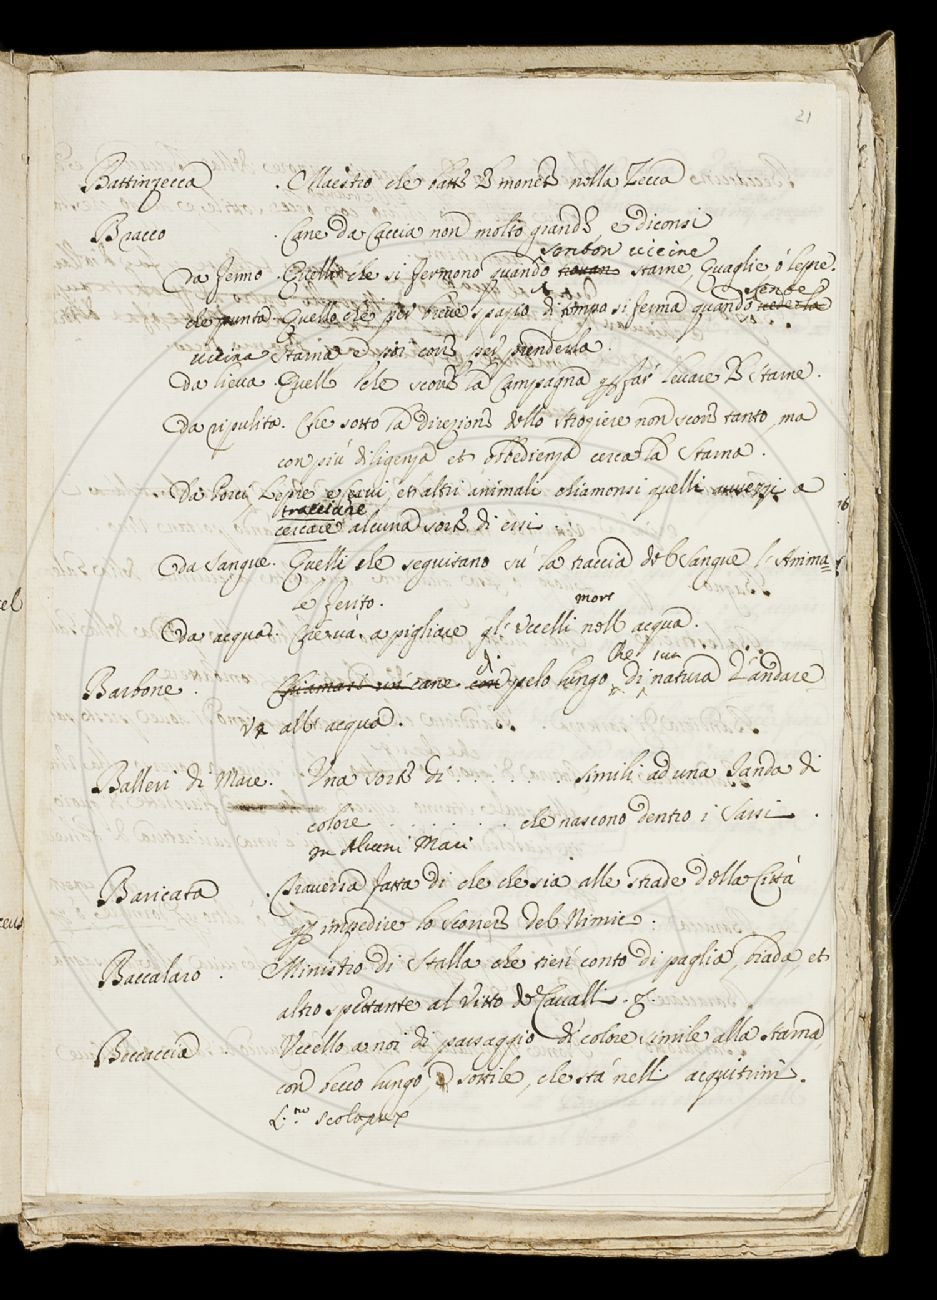 21
Battinzecca . Maestro che batte le monete nella Zecca
Bracco . Cane da Caccia non molto grande, e diconsi
senton vicine
Da fermo . Quelli che si fermono quando trovan starne, Quaglie ò lepre.
sente
che punta Quello che per breve spazio di tempo si ferma quando vede la
vicina starna e poi corre per prenderla.
Da lieva . Quell che scorre la Campagna per far levare le Starne.
Da ripulita . Che sotto la direzione dello strogiere non scorre tanto, ma
con più diligenza et obbedienza cerca la Starna.
Da Porci Lepre e et altri animali chiamonsi quelli avvezzi a
tracciare
cercare alcuna sorte di essi
Da Sangue . Quelli che seguitano sù la traccia del Sangue l'Anima=
le ferito.
mort
Da acqua . Che và a pigliare gl' Uccelli nell acqua.
di Che
Barbone . Chiamasi un cane con pelo lungo di natura d'andare
Va all' acqua.
Balleri di Mare . Una sorte di . . . . simili ad una Ianda di
colore . . . . . . che nascono dentro i Sassi .
in Alcuni Mari
Baricata . Traversa fatta di che che sia alle strade della Città
per impedire lo scorrere del Nimic .
Baccalaro . Ministro di Stalla che tien conto di paglia, biada, et
altro spettante al Vitto de Cavalli .
Beccaccia Uccello a noi di passaggio di colore simile alla starna
con becco lungo, e sottile, che stà nelli acquitrini.
L.no scolopax